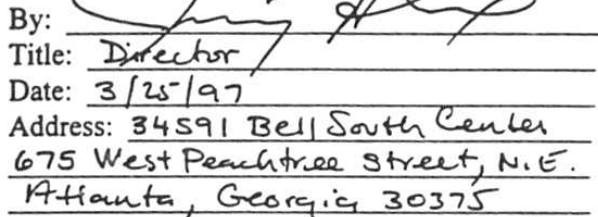 By:
Title: Director
Date: 3/25/97
Address: 34591 Bell South Center
675 West Peachtree Street, N.E.
Atlanta, Georgia 30375